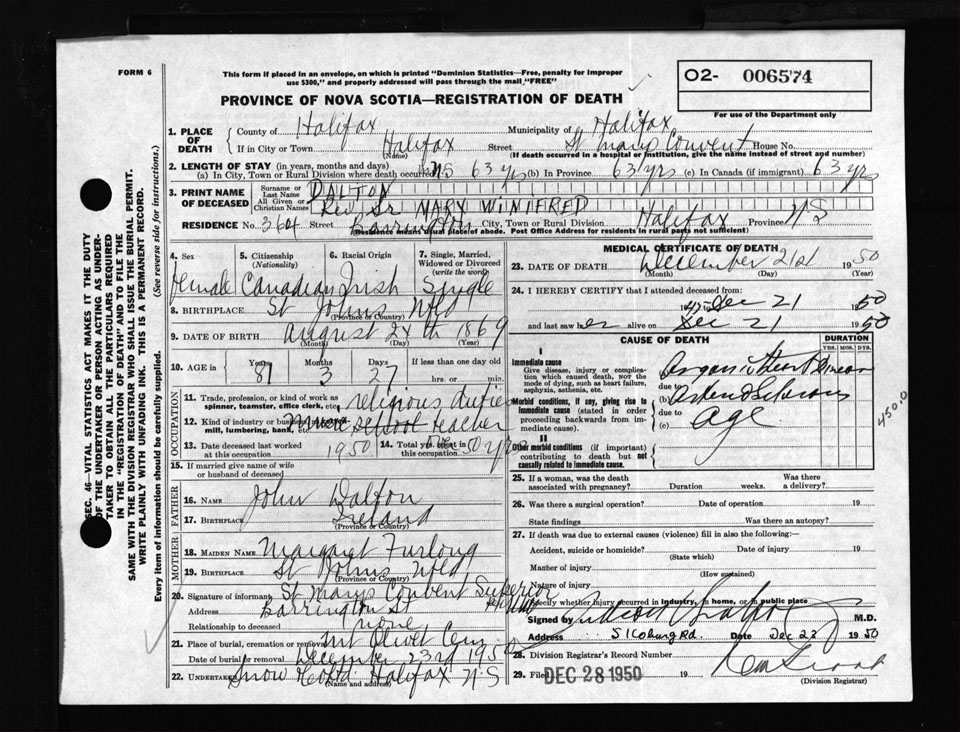 FORM 6
This form if placed in an envelope, on which is printed "Dominion Statistics—Free, penalty for improper
use $300," and properly addressed will pass through the mail "FREE"
PROVINCE OF NOVA SCOTIA—REGISTRATION OF DEATH
O2- 006574
For use of the Department only
SEC. 46—VITAL STATISTICS ACT MAKES IT THE DUTY
OF THE UNDERTAKER OR PERSON ACTING AS UNDER-
TAKER TO OBTAIN ALL THE PARTICULARS REQUIRED
IN THE "REGISTRATION OF DEATH" AND TO FILE THE
SAME WITH THE DIVISION REGISTRAR WHO SHALL ISSUE THE BURIAL PERMIT.
WRITE PLAINLY WITH UNFADING INK. THIS IS A PERMANENT RECORD.
Every item of information should be carefully supplied. (See reverse side for instructions.)
1. PLACE OF DEATH
County of Halifax Municipality of Halifax
If in City or Town Halifax Street St Marys Convent House No.
(Name) (If death occurred in a hospital or institution, give the name instead of street and number)
2. LENGTH OF STAY (in years, months and days)
(a) In City, Town or Rural Division where death occurred 63 yrs (b) In Province 63 yrs (c) In Canada (if immigrant) 63 yrs
3. PRINT NAME OF DECEASED
Surname or Last Name DALTON
All Given or Christian Names Rev Sr MARY WINIFRED
RESIDENCE No. 364 Street Barrington City, Town or Rural Division Halifax Province N S
(Residence means usual place of abode. Post Office Address for residents in rural parts not sufficient)
4. Sex
5. Citizenship (Nationality)
6. Racial Origin
7. Single, Married, Widowed or Divorced (write the word)
female Canadian Irish Single
8. BIRTHPLACE St Johns Nfld
(Province or Country)
9. DATE OF BIRTH August 24th 1869
(Month) (Day) (Year)
10. AGE in Years Months Days If less than one day old
81 3 27 hrs. or min.
OCCUPATION
11. Trade, profession, or kind of work as spinner, teamster, office clerk, etc. religious duties
12. Kind of industry or business, mill, lumbering, bank, etc. teacher
13. Date deceased last worked at this occupation 1950
14. Total yrs. this occupation 50 yrs
15. If married give name of wife or husband of deceased
FATHER
16. NAME John Dalton
17. BIRTHPLACE Ireland
(Province or Country)
MOTHER
18. MAIDEN NAME Margaret Furlong
19. BIRTHPLACE St Johns Nfld
(Province or Country)
20. Signature of informant St Marys Convent Superior
Address Barrington St
Relationship to deceased none
21. Place of burial, cremation or removal Mt Olivet Cem
Date of burial or removal December 23rd 1950
22. UNDERTAKER Snow Halifax N S
(Name and address)
MEDICAL CERTIFICATE OF DEATH
23. DATE OF DEATH December 21st 1950
(Month) (Day) (Year)
24. I HEREBY CERTIFY that I attended deceased from:
Dec 21 1950
and last saw her alive on Dec 21 1950
CAUSE OF DEATH
DURATION
YRS. MOS. DYS.
I
Immediate cause
Give disease, injury or complication which caused death, not the mode of dying, such as heart failure, asphyxia, asthenia, etc.
Organic Heart Disease
due to
Morbid conditions, if any, giving rise to immediate cause (stated in order proceeding backwards from immediate cause).
(b)
due to
(c) age
450.0
II
Other morbid conditions (if important) contributing to death but not causally related to immediate cause.
25. If a woman, was the death associated with pregnancy? Duration weeks. Was there a delivery?
26. Was there a surgical operation? Date of operation 19
State findings Was there an autopsy?
27. If death was due to external causes (violence) fill in also the following:—
Accident, suicide or homicide? Date of injury 19
(State which)
Manner of injury
(How sustained)
Nature of injury
Specify whether injury occurred in industry, in home, or in public place
Signed by M.D.
Address 51 Coburg Rd. Date Dec 23 1950
28. Division Registrar's Record Number
29. Filed DEC 28 1950 19
(Division Registrar)